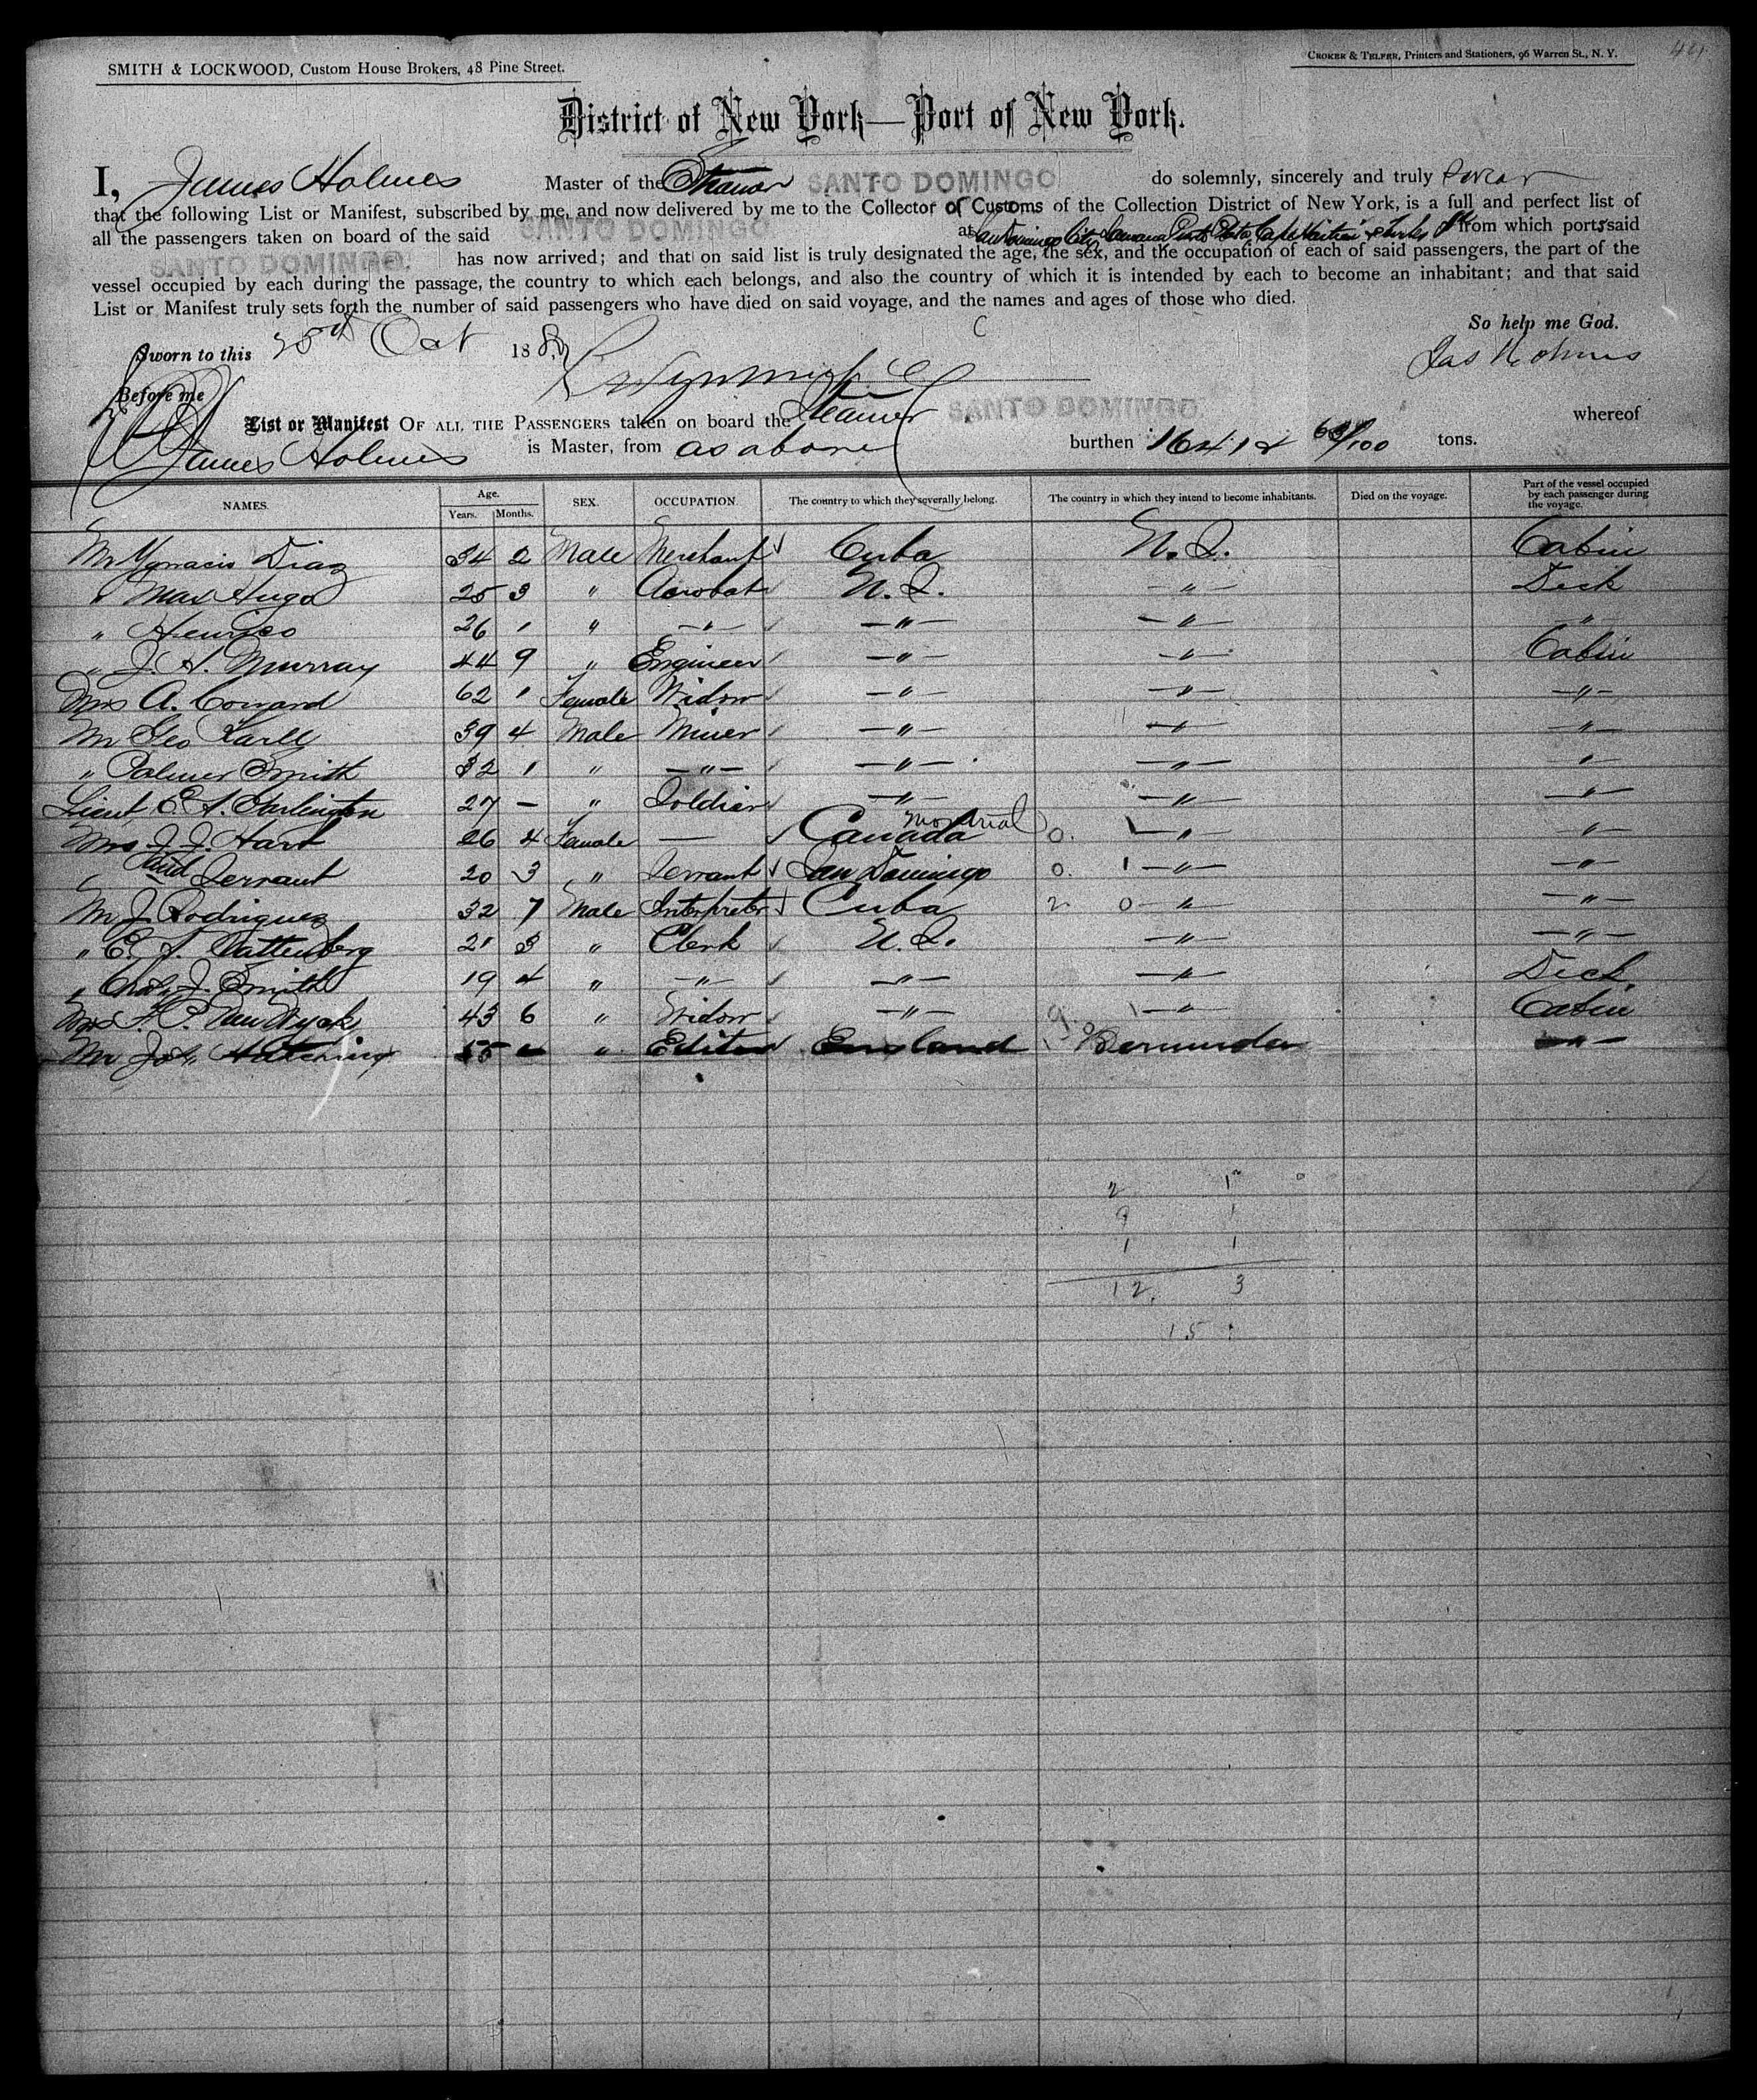 44
SMITH & LOCKWOOD, Custom House Brokers, 48 Pine Street.
CROKER & TELFER, Printers and Stationers, 96 Warren St., N. Y.
District of New York—Port of New York.
I, James Holmes Master of the Steamer SANTO DOMINGO do solemnly, sincerely and truly swear
that the following List or Manifest, subscribed by me, and now delivered by me to the Collector of Customs of the Collection District of New York, is a full and perfect list of
all the passengers taken on board of the said SANTO DOMINGO at San Domingo City Samana Puerto Plata Cape Haitien & Turks from which ports said
SANTO DOMINGO. has now arrived; and that on said list is truly designated the age, the sex, and the occupation of each of said passengers, the part of the
vessel occupied by each during the passage, the country to which each belongs, and also the country of which it is intended by each to become an inhabitant; and that said
List or Manifest truly sets forth the number of said passengers who have died on said voyage, and the names and ages of those who died.
So help me God.
Sworn to this 25th Oct 188 Jas Holmes
Before me
List or Manifest OF ALL THE PASSENGERS taken on board the Steamer SANTO DOMINGO. whereof
James Holmes is Master, from as above burthen tons.
NAMES. Age. Years. Months. SEX. OCCUPATION. The country to which they severally belong. The country in which they intend to become inhabitants. Died on the voyage. Part of the vessel occupied by each passenger during the voyage.
Mr Ygnacio Diaz 34 2 Male Merchant Cuba U.S. Cabin
" Max Hugo 25 3 " Acrobat U.S. " Deck
" Henrico 26 1 " " " " "
" J. A. Murray 44 9 " Engineer " " Cabin
Mrs A. Conard 62 1 Female Widow " " "
Mr Geo Karll 39 4 Male Miner " " "
" Palmer Smith 32 1 " " " " "
Lieut E. A. 27 — " Soldier " " "
Mrs J. J. Hart 26 4 Female — Canada Montreal 0. 1 " "
and Servant 20 3 " Servant San Domingo 0. 1 " "
Mr J. Rodriguez 32 7 Male Interpreter Cuba 2 0 " "
" E. A. 21 3 " Clerk U.S. " "
" Chas. J. Smith 19 4 " " " " Deck
Mrs F. P. Van Wyck 43 6 " Widow " 9. 1 " Cabin
Mr John Hutchings 55 " Editor England Bermuda "
2 1
9 1
1 1
12. 3
15